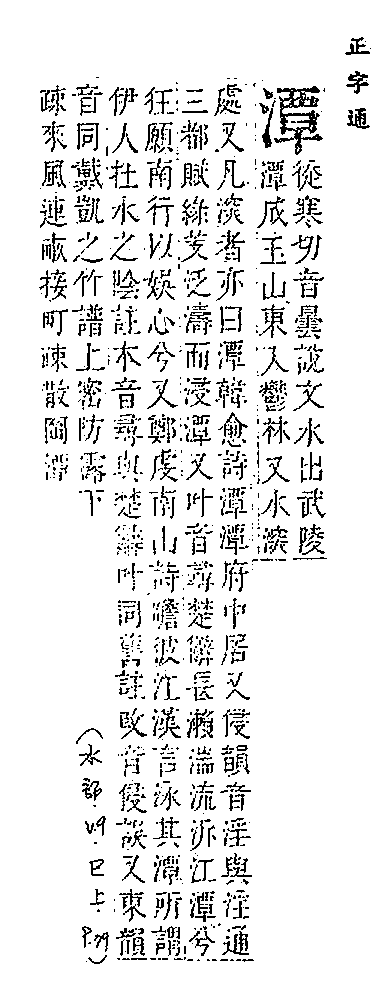 正字通
潭
從寒切音曇說文水出武陵
潭成玉山東入鬱林又水深
處又凡深者亦曰潭韓愈詩潭潭府中居又侵韻音淫與淫通
三都賦綠芰泛濤而浸潭又叶音尋楚辭長瀨湍流泝江潭兮
狂顧南行以娛心兮又鄭虔南山詩瞻彼江漢言泳其潭所謂
伊人在水之陰註本音尋與楚辭叶同舊註改音侵誤又東韻
音同戴凱之竹譜上密防露下
疎來風連畝接町疎散岡潭
(水部.V.9.巳上.P.79)